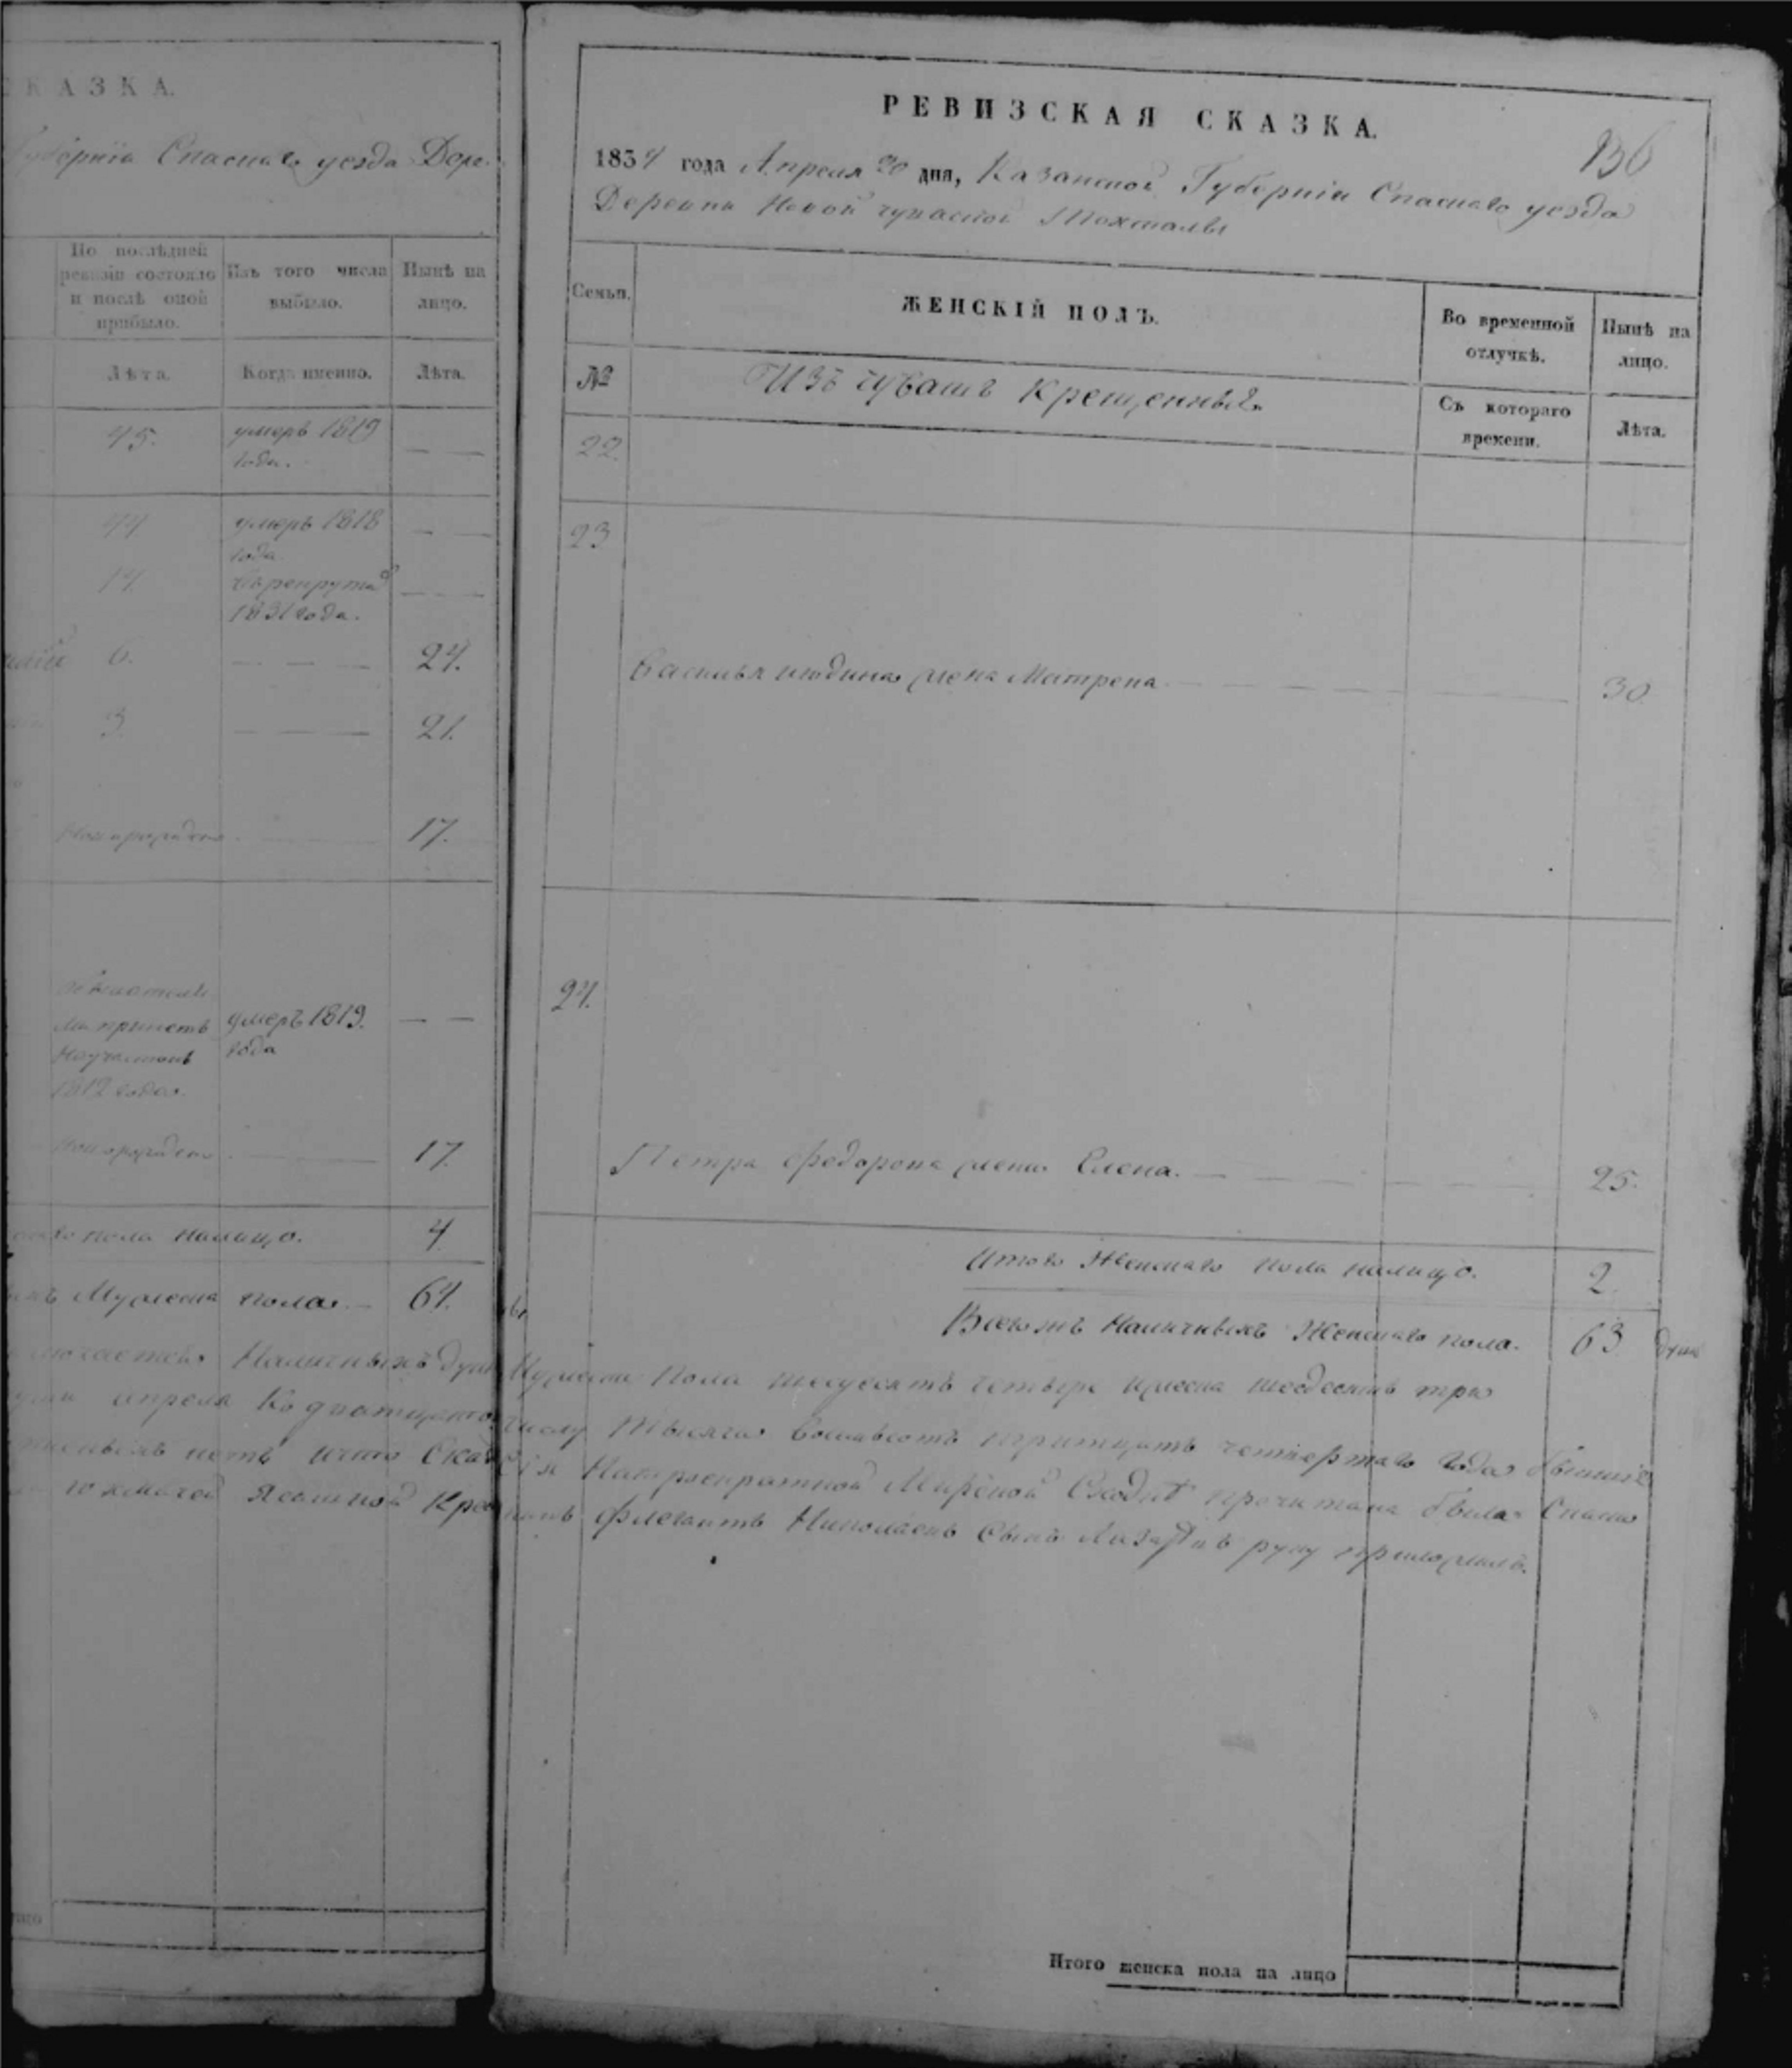 КАЗКА.
Губернiи Спаскаго уезда Дере.
По послѣдней
ревизіи состояло
и послѣ оной
прибыло.
Изъ того числа
выбыло.
Нынѣ на
лицо.
Лѣта.
Когда именно.
Лѣта.
45.
умеръ 1819
года.
— —
44
умеръ 1818
года
— —
14
въ рекруты
1831 года.
— —
6.
— — —
24.
3.
21.
Новорожден
17.
умеръ 1819.
года
— —
1812 года.
Новорожден
17.
пола налицо.
4
Мужеска пола. — 64.
РЕВИЗСКАЯ СКАЗКА.
136
1834 года Апреля 20 дня, Казанской Губерніи Спаскаго уезда
Деревни Новой чуваской
Семьи.
ЖЕНСКІЙ ПОЛЪ.
Во временной
отлучкѣ.
Нынѣ на
лицо.
№
Изъ чувашъ крещенныхъ
Съ котораго
времени.
Лѣта.
22.
23
Василья Июдина жена Матрена — 30.
24.
Петра Федорова жена Елена. — 25.
Итого Женскаго пола налицо. 2
Всехъ Наличныхъ Женскаго пола. 63 душ
Наличныхъ душ Мужеска пола шесдесятъ четыре женска шесдесятъ три
апреля числу тысяча восемьсотъ тритцать четвертаго года
нетъ Мирской Сходке прочитана была
Николаевъ Сынъ руку приложилъ.
Итого женска пола на лицо